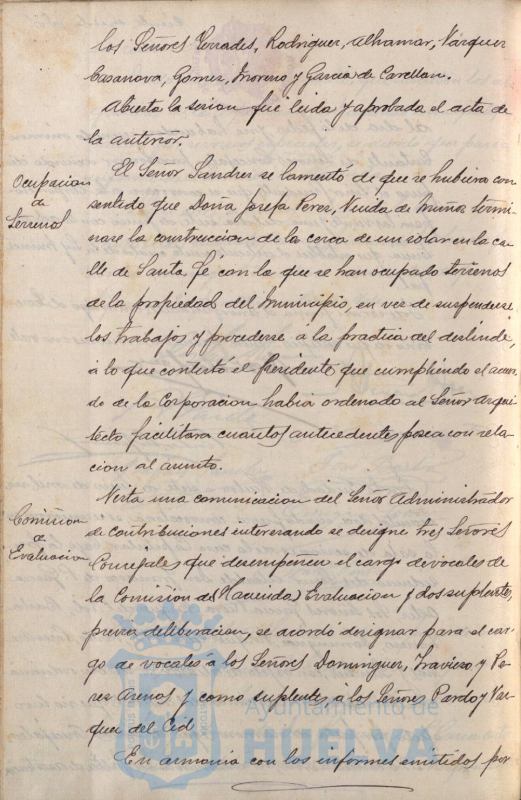 los Señores Terrades, Rodriguez, Alhamar, Vazquez
Casanova, Gomez, Moreno y Garcia de Castellon.
Abierta la sesion fué leida y aprobada el acta de
la anterior.
Ocupacion
de
terrenos
El Señor Sandrez se lamentó de que se hubiera con
sentido que Doña Josefa Perez, Viuda de Muñoz termi
nase la construccion de la cerca de un solar en la ca
lle de Santa Fé con la que se han ocupado terrenos
de la propiedad del Municipio, en vez de suspenderse
los trabajos y procederse á la practica del deslinde,
á lo que contestó el Presidente que cumpliendo el acuer
do de la Corporacion habia ordenado al Señor Arqui
tecto facilitara cuantos antecedentes posea con rela
cion al asunto.
Comision
de
Evaluacion
Vista una comunicacion del Señor Administrador
de contribuciones interesando se designe tres Señores
Concejales que desempeñen el cargo de vocales de
la Comision de (Hacienda) Evaluacion y dos suplentes,
previa deliberacion, se acordó designar para el car
go de vocales á los Señores Dominguez, Traviero y Pe
rez Asenos y como suplentes, á los Señores Pardo y Vaz
quez del Cid
En armonia con los informes emitidos por
Ayuntamiento de
HUELVA